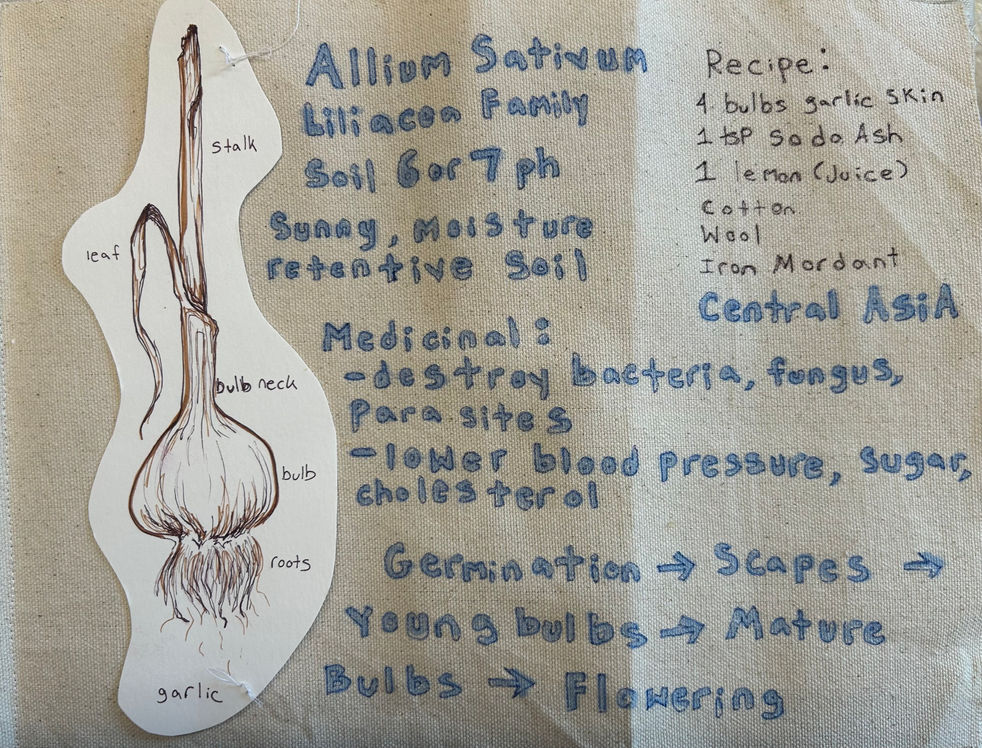 stalk
leaf
bulb neck
bulb
roots
garlic
Allium Sativum
Liliacea Family
Soil 6 or 7 ph
Sunny, moisture
retentive Soil
Medicinal:
-destroy bacteria, fungus,
Parasites
-lower blood pressure, sugar,
cholesterol
Germination → Scapes →
Young bulbs → Mature
Bulbs → Flowering
Recipe:
4 bulbs garlic skin
1 tsp Soda Ash
1 lemon (Juice)
Cotton
Wool
Iron Mordant
Central AsiA